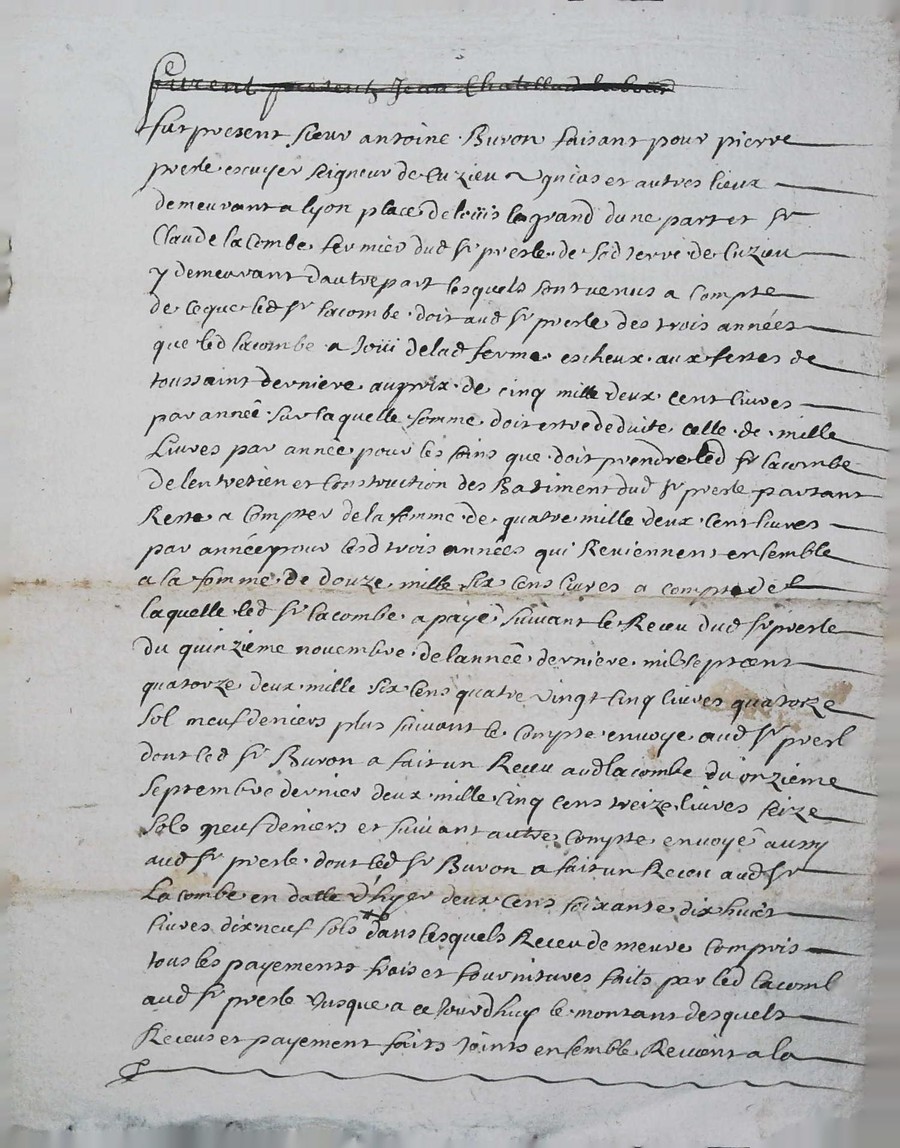 furent present Jean Chatellard labour
fut present sieur antoine Buron faisant pour pierre
presle escuyer seigneur de Cuzieu et autres lieux
demeurant a lyon place de loüis le grand dune part et sr
Claude lacombe fermier dud sr presle de sad terre de Cuzieu
y demeurant dautre part lesquels sont venus a compte
de ce que led sr lacombe doit aud sr presle des trois années
que led lacombe a Joüi de lad ferme escheux aux festes de
toussaint derniere au prix de cinq mille deux cent livres
par année sur laquelle somme doit estre deduite celle de mille
Livres par année pour les soins que doit prendre led sr lacombe
de lentretien et Construction des Batiment dud sr presle partant
Reste a Compter de la somme de quatre mille deux cent livres
par année pour lesd trois années qui Reviennent ensemble
a la somme de douze mille six cens livres a compte de
laquelle led sr lacombe a payé suivant le Receu dud sr presle
du quinzieme novembre de lannée derniere mil sept cent
quatorze deux mille six cens quatre vingt cinq livres quatorze
sol neuf deniers plus suivant le compte envoye aud sr presl
dont led sr Buron a fait un Receu aud lacombe du onzieme
septembre dernier deux mille cinq cens treize livres seize
sols neuf deniers et suivant autre compte envoyé aussy
aud sr presle dont led sr Buron a fait un Receu aud sr
Lacombe en datte d'hyer deux cens soixante dix huict
livres dix neuf sols dans lesquels Receu demeure Compris
tous les payements frais et fournitures faits par led lacomb
aud sr presle Jusque a ce Jourdhuy le montant desquels
Receus et payement faits Joints ensemble Revient a la